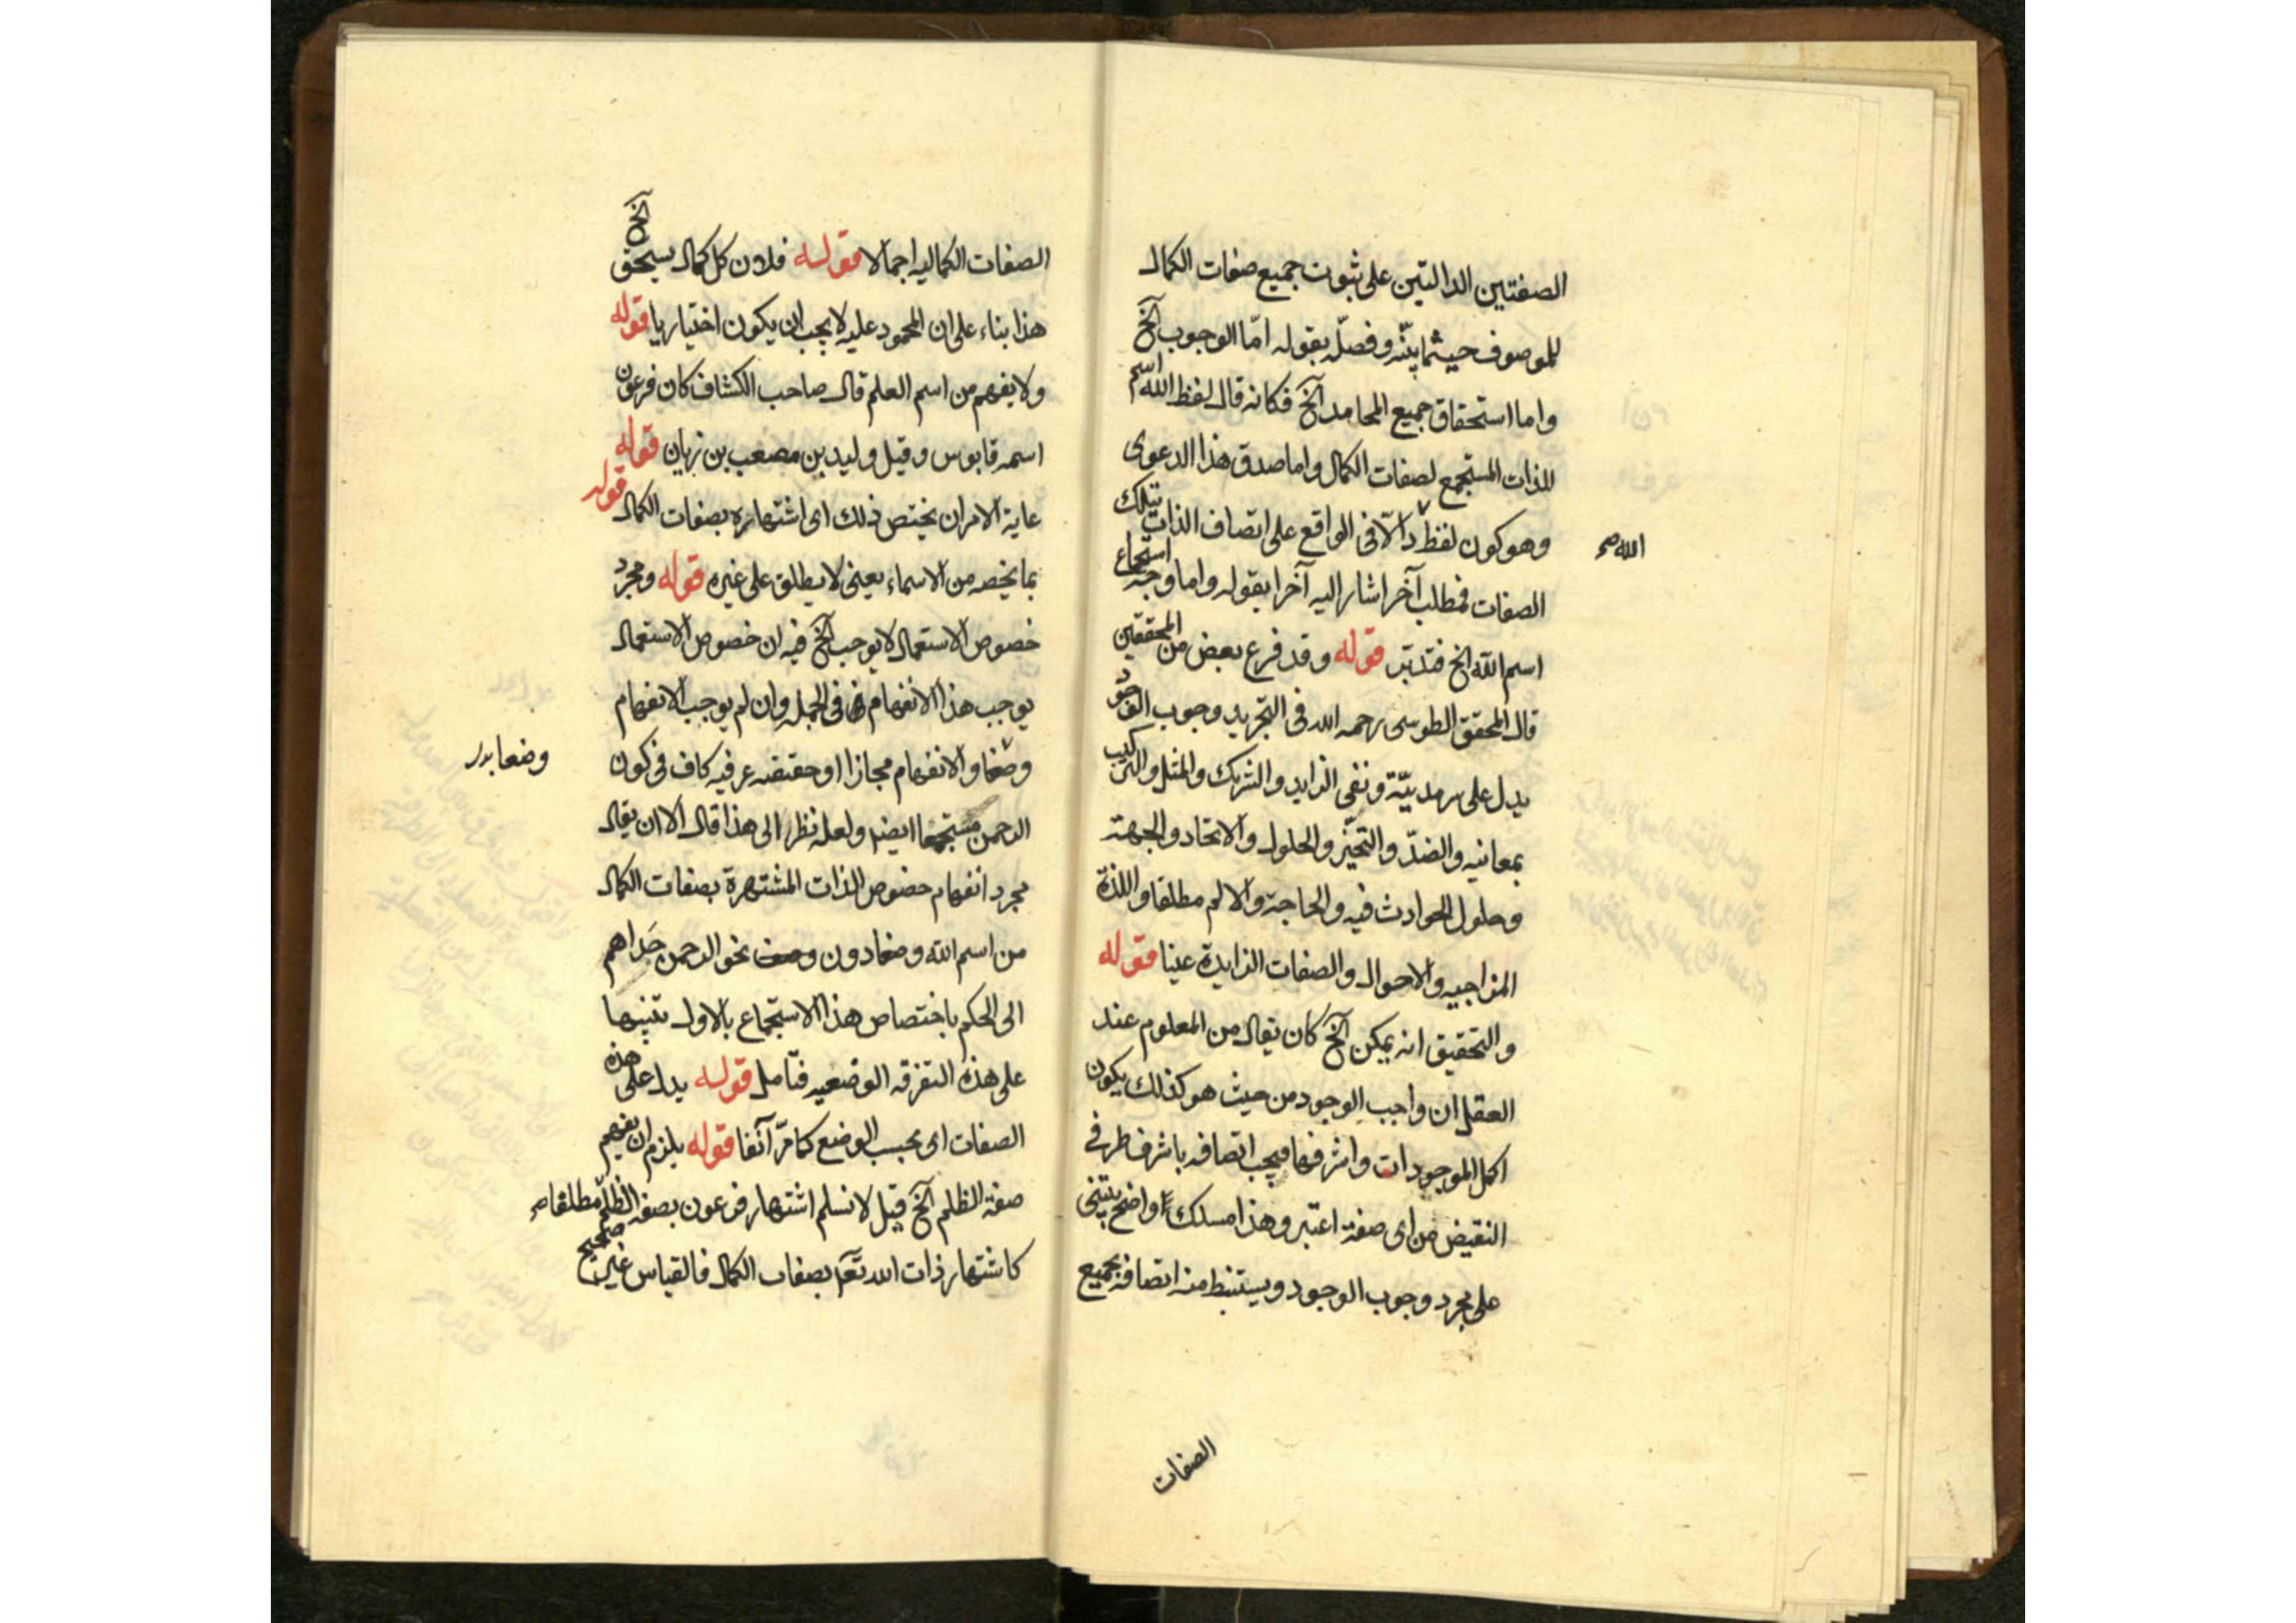 الصفتين الدالتين على ثبوت جميع صفات الكمال
للموصوف حيثما بيّنه وفصلّه بقوله امّا الوجوب الخ
واما استحقاق جميع المحامد الخ فكانه قال لفظ الله اسم
للذات المستجمع لصفات الكمال واما صدق هذا الدعوى
وهو كون لفظ دالّا فى الواقع على اتصاف الذات بتلك
الله صح
الصفات فمطلب آخر اشار اليه آخرا بقوله واما وجه استجماع
اسم الله الخ فتدبّر قوله وقد فرع بعض من المحققين
قال المحقق الطوسى رحمه الله فى التجريد وجوب الوجود
يدل على سرمديّته ونفى الزايد والشريك والمثل والتركيب
بمعانيه والضدّ والتحيّز والحلول والاتحاد والجهة
وحلول الحوادث فيه والحاجة والالم مطلقا واللذة
المزاجيه والاحوال والصفات الزايدة عينا قوله
والتحقيق انه يمكن الخ كان يقال من المعلوم عند
العقل ان واجب الوجود من حيث هو كذلك يكون
اكمل الموجودات واشرفها فيجب اتصافه باشرف طرفى
النقيض من اى صفة اعتبر وهذا مسلك واضح يبتنى
على مجرد وجوب الوجود ويستنبط منه اتصافه بجميع
الصفات
الصفات الكماليه اجمالا قوله فلان كل كمال يستحق الخ
هذا بناء على ان المحمود عليه لا يجب ان يكون اختياريا قوله
ولا يفهم من اسم العلم قال صاحب الكشاف كان فرعون
اسمه قابوس وقيل وليد بن مصعب بن زيان قوله
غاية الامر ان يختص ذلك اى اشتهاره بصفات الكمال قوله
بما يخصه من الاسماء يعنى لا يطلق على غيره قوله ومجرد
خصوص الاستعمال لا يوجب الخ فيه ان خصوص الاستعمال
يوجب هذا الانفهام فى الجمله وان لم يوجب الانفهام
وضعا والانفهام مجازا او حقيقه عرفيه كاف فى كون
وضعا بدر
الرحمن مستجمعا ايضا ولعله نظر الى هذا قال الا ان يقال
مجرد انفهام خصوص الذات المشتهرة بصفات الكمال
من اسم الله وضعا دون وصف نحو الرحمن حداهم
الى الحكم باختصاص هذا الاستجماع بالاول تنبيها
على هذه التفرقه الوضعيه فتامل قوله يدل على هذه
الصفات اى بحسب الوضع كما مرّ آنفا قوله يلزم ان يفهم
صفة الظلم الخ قيل لا نسلم اشتهار فرعون بصفة الظلم مطلقا صح
كاشتهار ذات الله تعا بصفات الكمال فالقياس غير صحيح